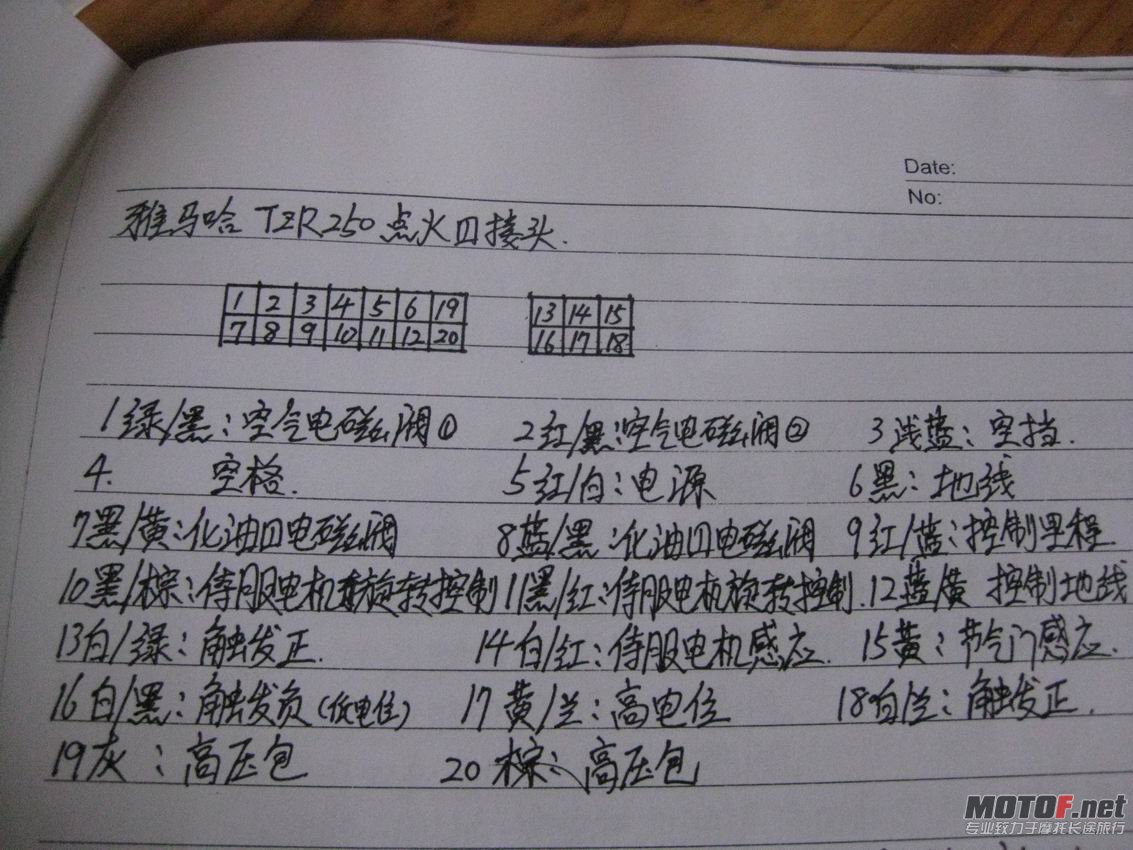 Date:
No:
雅马哈 TZR250点火四接头.
1 2 3 4 5 6 19 13 14 15
7 8 9 10 11 12 20 16 17 18
1绿/黑:空气电磁阀① 2红/黑:空气电磁阀② 3浅蓝:空挡.
4. 空格. 5红/白:电源 6黑:地线
7黑/黄:化油四电磁阀 8蓝/黑:化油四电磁阀 9红/蓝:控制里程.
10黑/棕:待服电机旋转控制 11黑/红:待服电机旋转控制. 12蓝/黄 控制地线
13白/绿:触发正. 14白/红:待服电机感应. 15黄:节气门感应.
16白/黑:触发负(低电位) 17黄/兰:高电位 18白/兰:触发正.
19灰:高压包 20棕:高压包
MOTOF.net
专业致力于摩托长途旅行